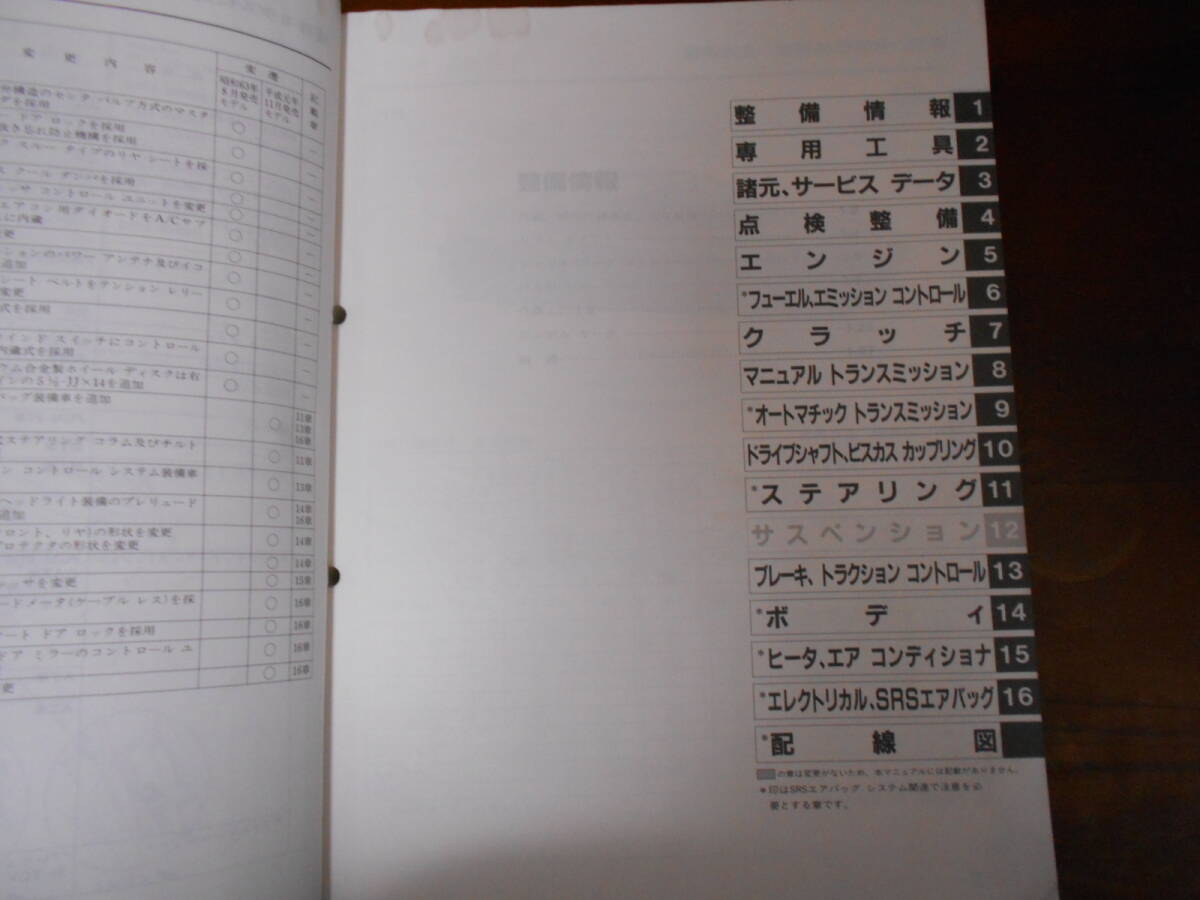 変更内容
変遷
記載章
昭和63年8月発売モデル
平成元年11月発売モデル
分構造のセンタ バルブ方式のマスタ
ダを採用
ドアロックを採用
抜き忘れ防止機構を採用
ク スルー タイプのリヤ シートを採
ス クール ダンパを採用
ッサ コントロール ユニットを変更
エアコン用ダイオードをA/Cサブ
に内蔵
更
ションのパワー アンテナ及びイコ
追加
シート ベルトをテンション レリー
変更
式を採用
ウインド スイッチにコントロール
内蔵式を採用
ウム合金製ホイール ディスクは右
インの5½-JJ×14を追加
バッグ装備車を追加
11章
13章
16章
ステアリング コラム及びチルト
11章
ン コントロール システム装備車
13章
ヘッドライト装備のプレリュード
追加
14章
16章
フロント、リヤ)の形状を変更
14章
プロテクタの形状を変更
14章
ッサを変更
15章
ードメータ(ケーブル レス)を採
16章
ート ドア ロックを採用
16章
ドア ミラーのコントロール ユ
16章
更
16章
整備情報 1
専用工具 2
諸元、サービス データ 3
点検整備 4
エンジン 5
*フューエル、エミッション コントロール 6
クラッチ 7
マニュアル トランスミッション 8
*オートマチック トランスミッション 9
ドライブシャフト、ビスカス カップリング 10
*ステアリング 11
サスペンション 12
ブレーキ、トラクション コントロール 13
*ボディ 14
*ヒータ、エア コンディショナ 15
*エレクトリカル、SRSエアバッグ 16
*配線図
の章は変更がないため、本マニュアルには記載がありません。
*印はSRSエアバッグ システム関連で注意を必
要とする章です。